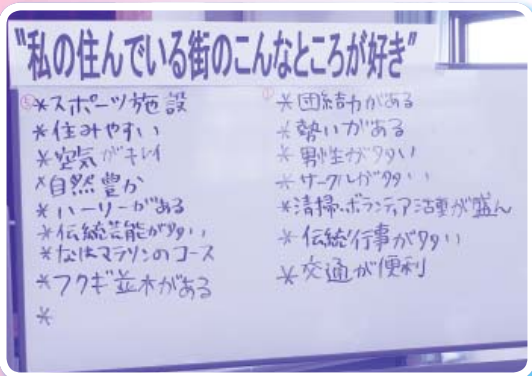 "私の住んでいる街のこんなところが好き"
*スポーツ施設
*住みやすい
*空気がキレイ
*自然豊か
*ハーリーがある
*伝統芸能が多い
*なはマラソンのコース
*フクギ並木がある
*
*団結力がある
*勢いがある
*男性が多い
*サークルが多い
*清掃ボランティア活動が盛ん
*伝統行事が多い
*交通が便利